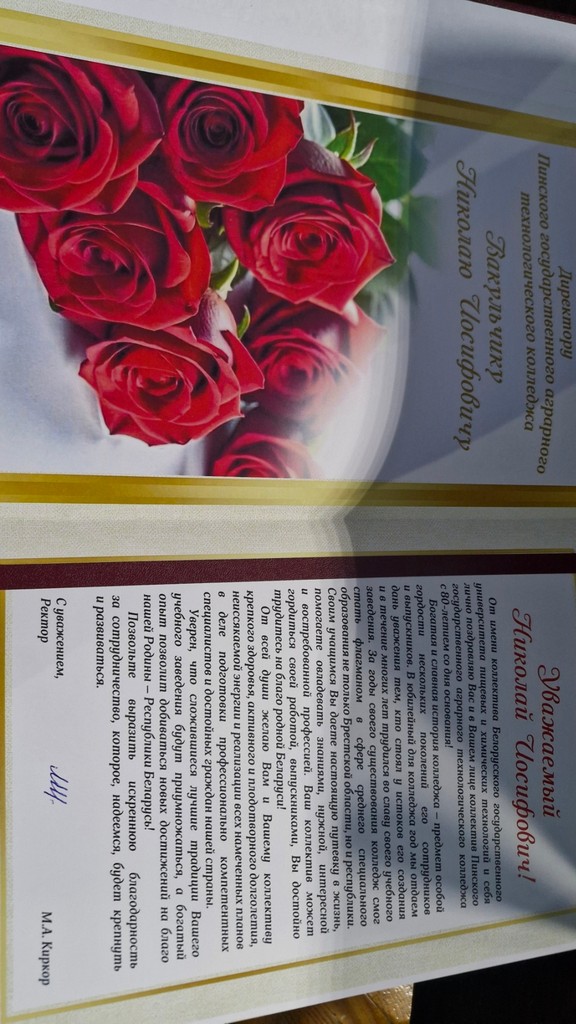 Директору
Пинского государственного аграрного
технологического колледжа
Вакульчику
Николаю Иосифовичу
Уважаемый
Николай Иосифович!
От имени коллектива Белорусского государственного
университета пищевых и химических технологий и себя
лично поздравляю Вас и в Вашем лице коллектив Пинского
государственного аграрного технологического колледжа
с 80-летием со дня основания!
Богатая и славная история колледжа – предмет особой
гордости нескольких поколений его сотрудников
и выпускников. В юбилейный для колледжа год мы отдаем
дань уважения тем, кто стоял у истоков его создания
и в течение многих лет трудился во славу своего учебного
заведения. За годы своего существования колледж смог
стать флагманом в сфере среднего специального
образования не только Брестской области, но и республики.
Своим учащимся Вы даете настоящую путевку в жизнь,
помогаете овладевать знаниями, нужной, интересной
и востребованной профессией. Ваш коллектив может
гордиться своей работой, выпускниками, Вы достойно
трудитесь на благо родной Беларуси!
От всей души желаю Вам и Вашему коллективу
крепкого здоровья, активного и плодотворного долголетия,
неиссякаемой энергии и реализации всех намеченных планов
в деле подготовки профессионально компетентных
специалистов и достойных граждан нашей страны.
Уверен, что сложившиеся лучшие традиции Вашего
учебного заведения будут приумножаться, а богатый
опыт позволит добиваться новых достижений на благо
нашей Родины – Республики Беларусь!
Позвольте выразить искреннюю благодарность
за сотрудничество, которое, надеемся, будет крепнуть
и развиваться.
С уважением,
Ректор М.А. Киркор